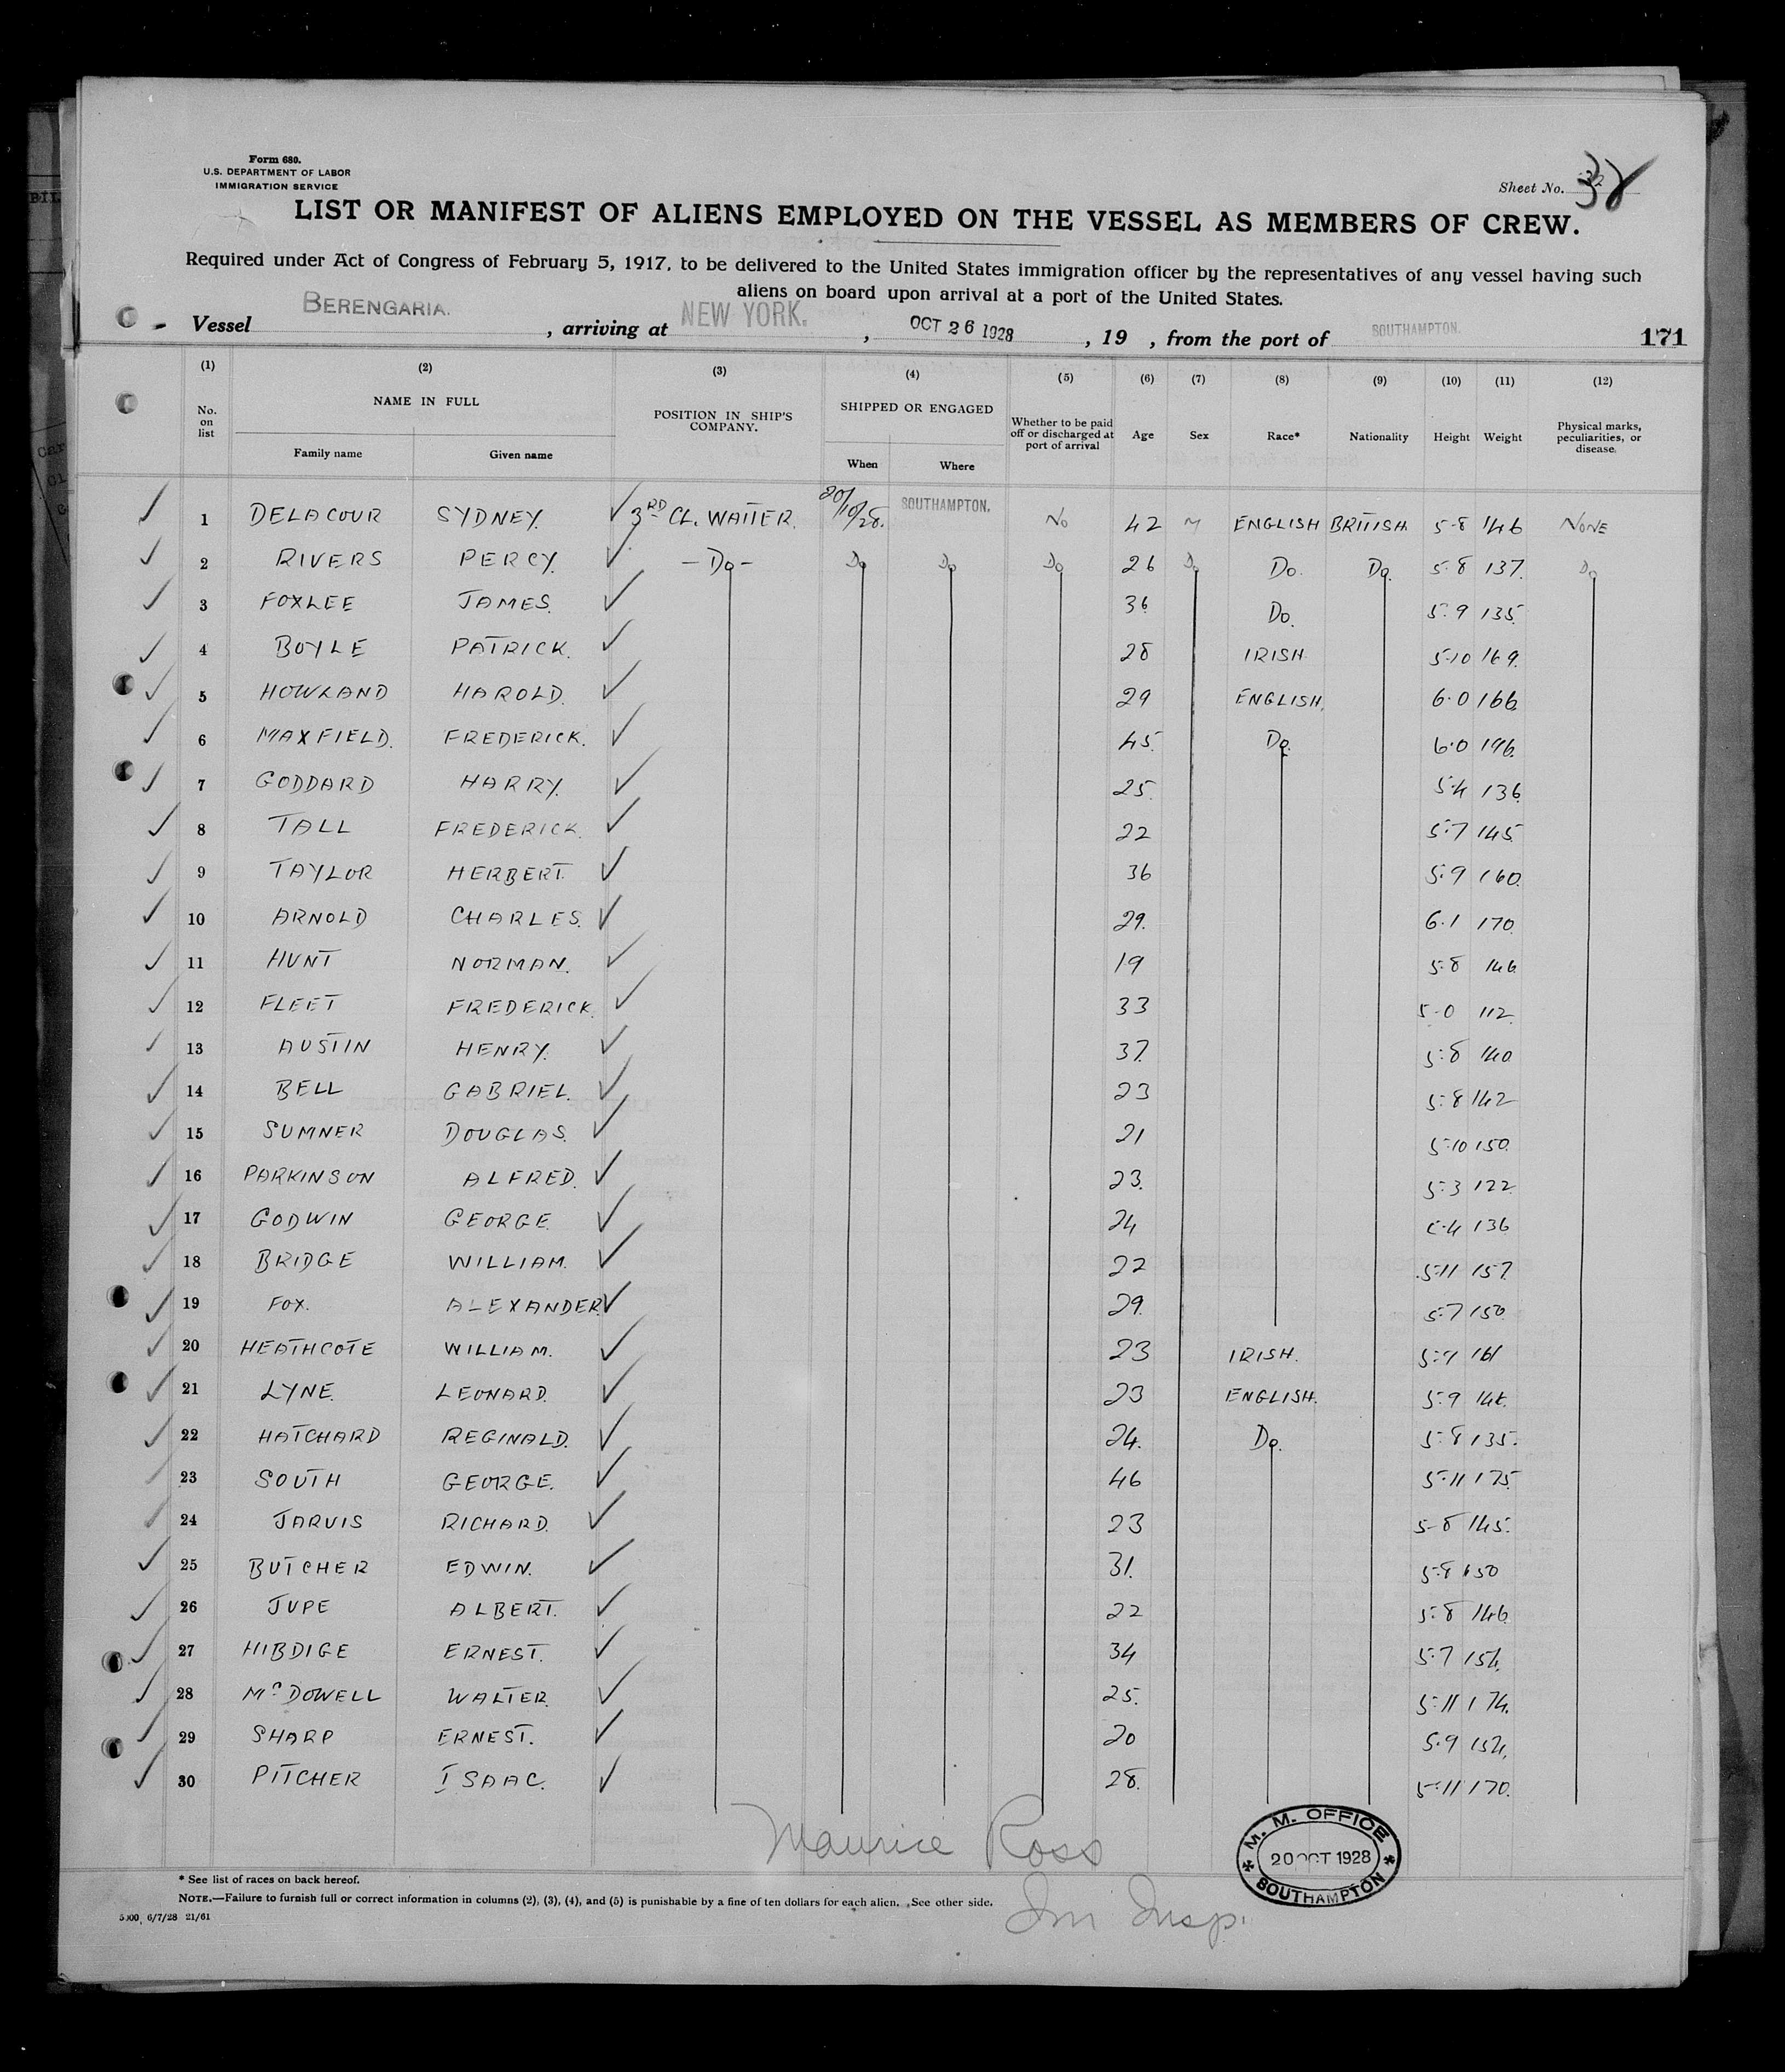 Form 680.
U.S. DEPARTMENT OF LABOR
IMMIGRATION SERVICE
Sheet No.
LIST OR MANIFEST OF ALIENS EMPLOYED ON THE VESSEL AS MEMBERS OF CREW.
Required under Act of Congress of February 5, 1917, to be delivered to the United States immigration officer by the representatives of any vessel having such
aliens on board upon arrival at a port of the United States.
Vessel BERENGARIA. , arriving at NEW YORK. , OCT 26 1928 , 19 , from the port of SOUTHAMPTON. 171
(1) (2) (3) (4) (5) (6) (7) (8) (9) (10) (11) (12)
No. on list NAME IN FULL Family name Given name POSITION IN SHIP'S COMPANY. SHIPPED OR ENGAGED When Where Whether to be paid off or discharged at port of arrival Age Sex Race* Nationality Height Weight Physical marks, peculiarities, or disease.
1 DELACOUR SYDNEY. 3RD CL. WAITER. 20/10/28. SOUTHAMPTON. No 42 M ENGLISH BRITISH 5-8 146 NONE
2 RIVERS PERCY. -Do- Do Do Do 26 Do Do. Do. 5-8 137. Do
3 FOXLEE JAMES. 36 Do. 5-9 135.
4 BOYLE PATRICK. 28 IRISH 5-10 169.
5 HOWLAND HAROLD. 29 ENGLISH. 6-0 166.
6 MAXFIELD. FREDERICK. 45. Do. 6-0 196.
7 GODDARD HARRY. 25. 5-4 136.
8 TALL FREDERICK. 22 5-7 145.
9 TAYLOR HERBERT. 36 5-9 160.
10 ARNOLD CHARLES. 29. 6-1 170.
11 HUNT NORMAN. 19 5-8 146.
12 FLEET FREDERICK. 33 5-0 112.
13 AUSTIN HENRY. 37. 5-8 140
14 BELL GABRIEL. 23 5-8 142
15 SUMNER DOUGLAS. 21 5-10 150.
16 PARKINSON ALFRED. 23. 5-3 122
17 GODWIN GEORGE. 24 5-4 136
18 BRIDGE WILLIAM. 22 5-11 157.
19 FOX. ALEXANDER. 29. 5-7 150.
20 HEATHCOTE WILLIAM. 23 IRISH. 5-9 161
21 LYNE. LEONARD. 23 ENGLISH. 5-9
22 HATCHARD REGINALD. 24. Do. 5-8 135.
23 SOUTH GEORGE. 46 5-11 175.
24 JARVIS RICHARD. 23 5-8 145.
25 BUTCHER EDWIN. 31. 5-8 150
26 JUPE ALBERT. 22 5-8 146.
27 HIBDIGE ERNEST. 34 5-7 154.
28 McDOWELL WALTER. 25. 5-11 174.
29 SHARP ERNEST. 20 5-9 154.
30 PITCHER ISAAC. 28. 5-11 170.
Maurice Ross
Im Insp.
M. M. OFFICE
20 OCT 1928
SOUTHAMPTON
* See list of races on back hereof.
NOTE.—Failure to furnish full or correct information in columns (2), (3), (4), and (5) is punishable by a fine of ten dollars for each alien. See other side.
5000, 6/7/28 21/61